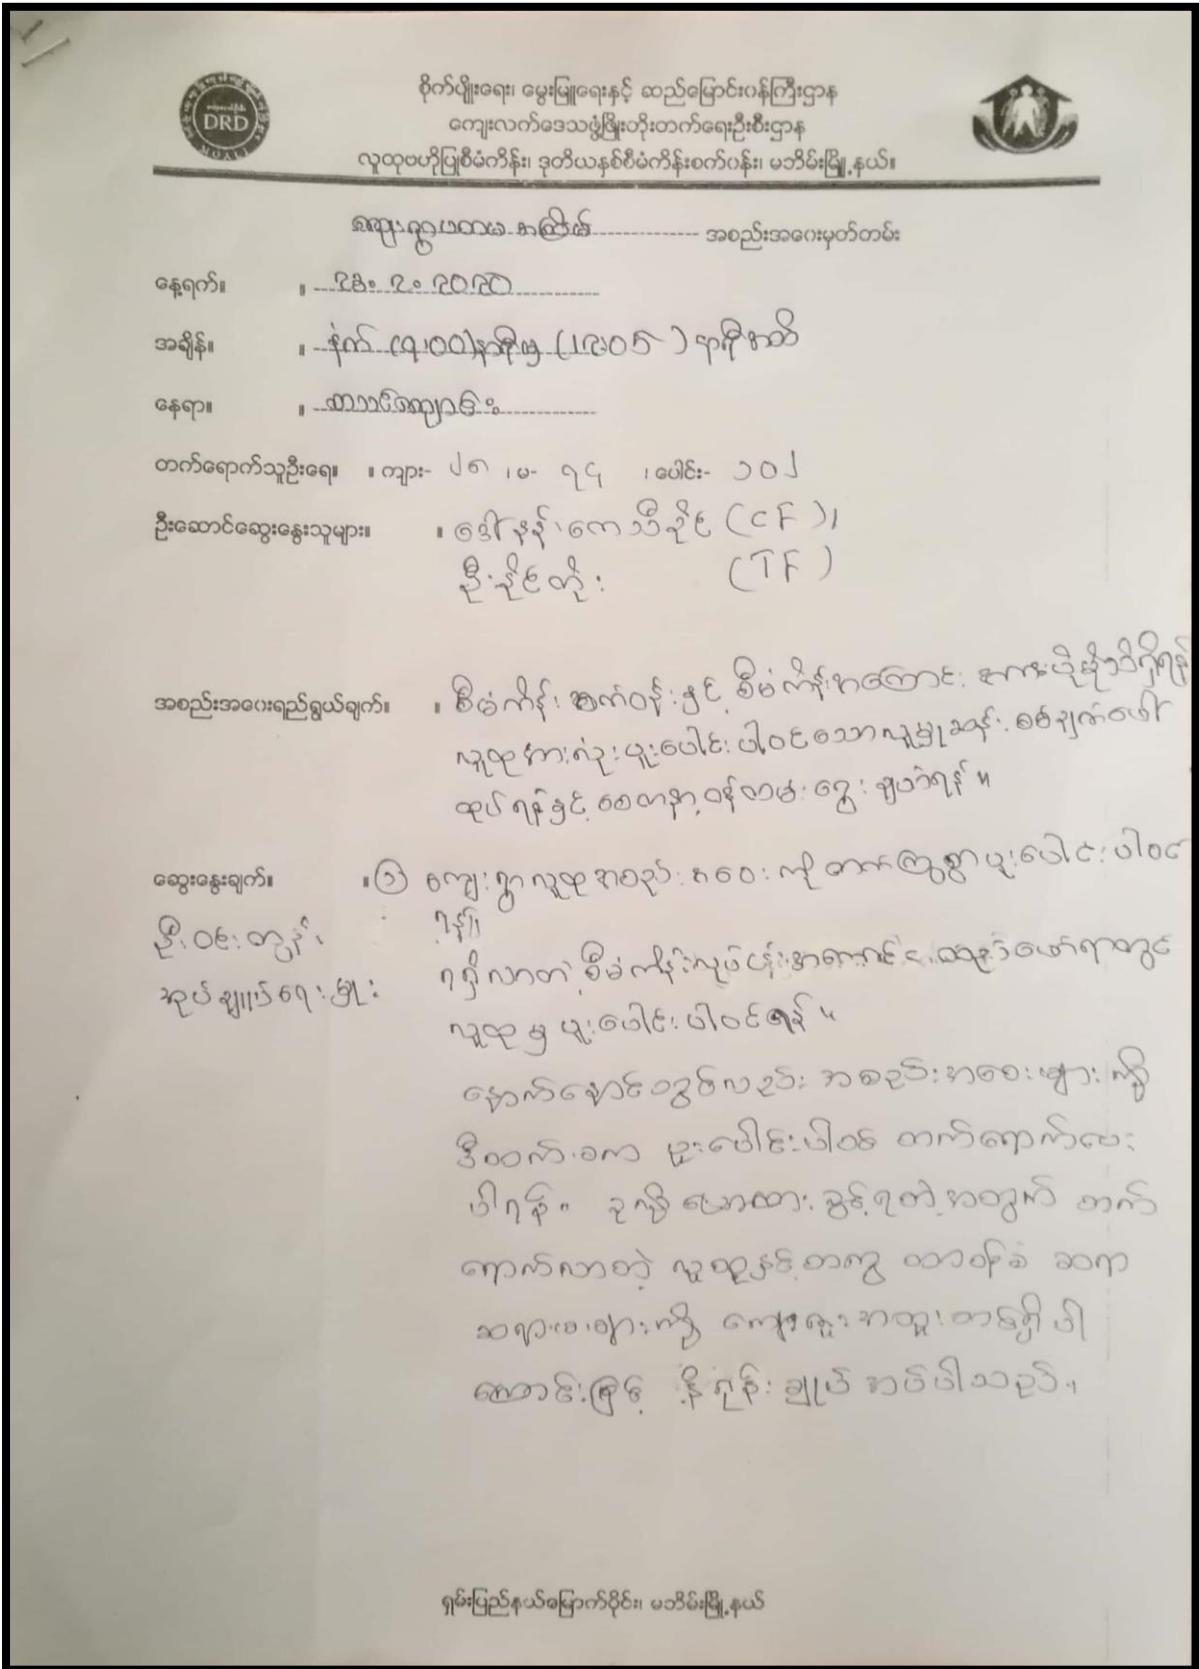 DRD
စိုက်ပျိုးရေး၊ မွေးမြူရေးနှင့် ဆည်မြောင်းဝန်ကြီးဌာန
ကျေးလက်ဒေသဖွံ့ဖြိုးတိုးတက်ရေးဦးစီးဌာန
လူထုဗဟိုပြုစီမံကိန်း၊ ဒုတိယနှစ်စီမံကိန်းစက်ဝန်း၊ မဘိမ်းမြို့နယ်။
ကျေးရွာပထမအကြိမ် အစည်းအဝေးမှတ်တမ်း
နေ့ရက်။ ။ ၂၀၂၀
အချိန်။ ။ နံက် (၇:၀၀)နာရီမှ နာရီအထိ
နေရာ။ ။ စာသင်ကျောင်း
တက်ရောက်သူဦးရေ။ ။ ကျား- ၂၈ ၊မ- ၇၄ ၊ပေါင်း- ၁၀၂
ဦးဆောင်ဆွေးနွေးသူများ။ ။ ဒေါ်နန်းကေသီခိုင် (CF)၊
ဦးနိုင်တိုး (TF)
အစည်းအဝေးရည်ရွယ်ချက်။ ။ စီမံကိန်း စက်ဝန်းနှင့် စီမံကိန်းအကြောင်း ပိုမိုသိရှိရန်
လူထုအားလုံး ပူးပေါင်းပါဝင်သော လူမှုဆန်းစစ်ချက်ဖော်
ထုတ်ရန်နှင့် စေတနာ့ဝန်ထမ်း ရွေးချယ်ရန်။
ဆွေးနွေးချက်။ ။ ၁ ကျေးရွာလူထုအစည်းအဝေးကို တက်ကြွစွာ ပူးပေါင်းပါဝင်
ဦးဝင်းထွန်း ရန်။
အုပ်ချုပ်ရေးမှူး ရရှိလာတဲ့ စီမံကိန်းလုပ်ငန်း အကောင်အထည်ဖော်ရာတွင်
လူထုမှ ပူးပေါင်းပါဝင်ရန်။
နောက်နောင်တွင်လည်း အစည်းအဝေးများကို
ဒီထက်မက ပူးပေါင်းပါဝင် တက်ရောက်ပေး
ပါရန်။ ခုလို ခွင့်ရတဲ့အတွက် တက်
ရောက်လာတဲ့ လူထုနှင့်တကွ တာဝန်ခံ ဆရာ
ဆရာမများကို ကျေးဇူးအထူးတင်ရှိပါ
ကြောင်းဖြင့် နိဂုံးချုပ်အပ်ပါသည်။
ရှမ်းပြည်နယ်မြောက်ပိုင်း၊ မဘိမ်းမြို့နယ်